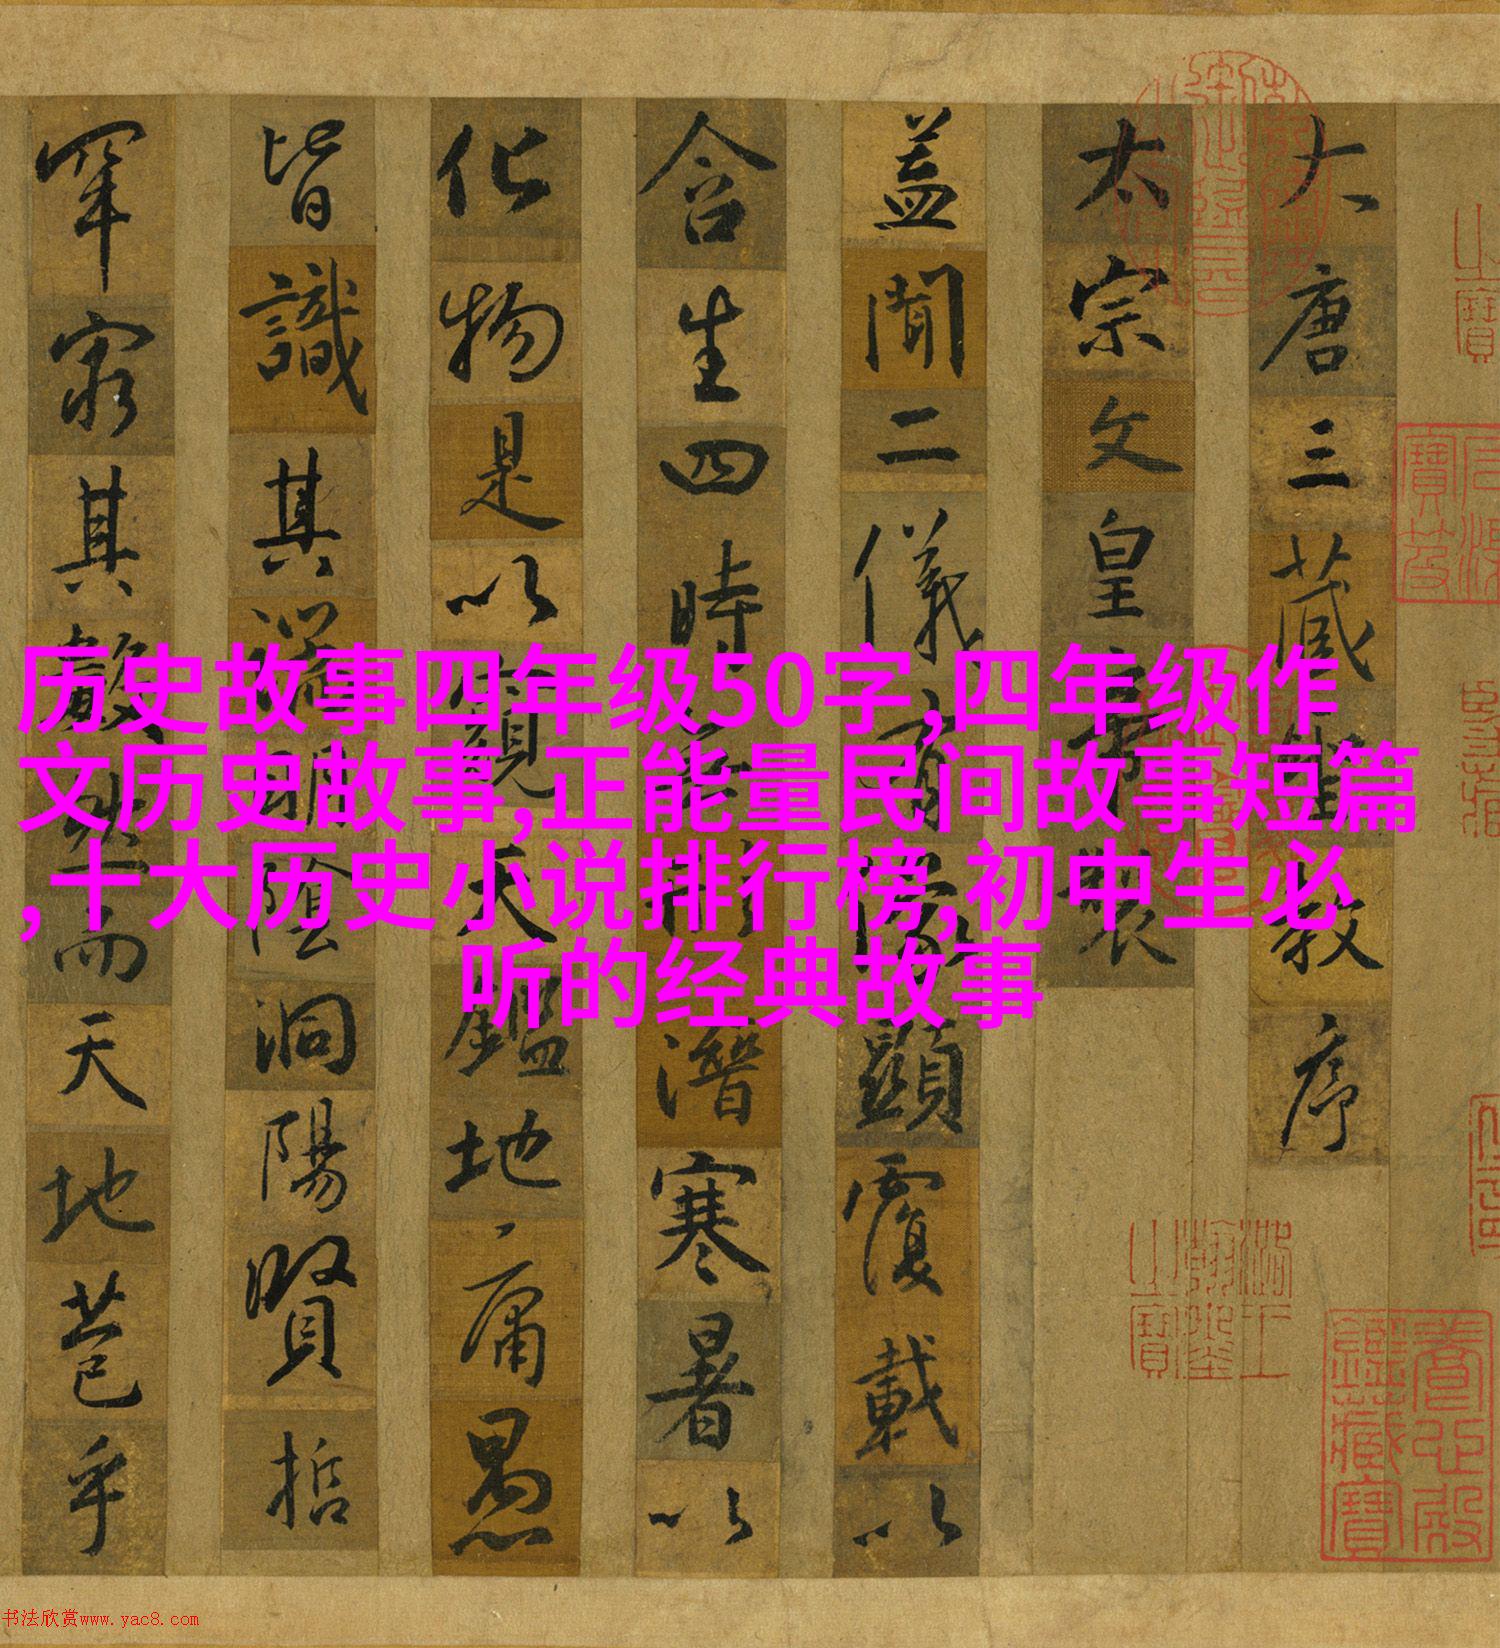 大唐三藏聖教序
太宗文皇帝製
盖聞二儀有像顯覆載以
含生四時無形潛寒暑以
化物是以窺天鑑地庸愚
皆識其端明陰洞陽賢哲
罕窮其數然而天地苞乎
历史故事四年级50字,四年级作
文历史故事,正能量民间故事短篇
,十大历史小说排行榜,初中生必
听的经典故事
養心殿
鑑藏寶
书法欣赏www.yac8.com